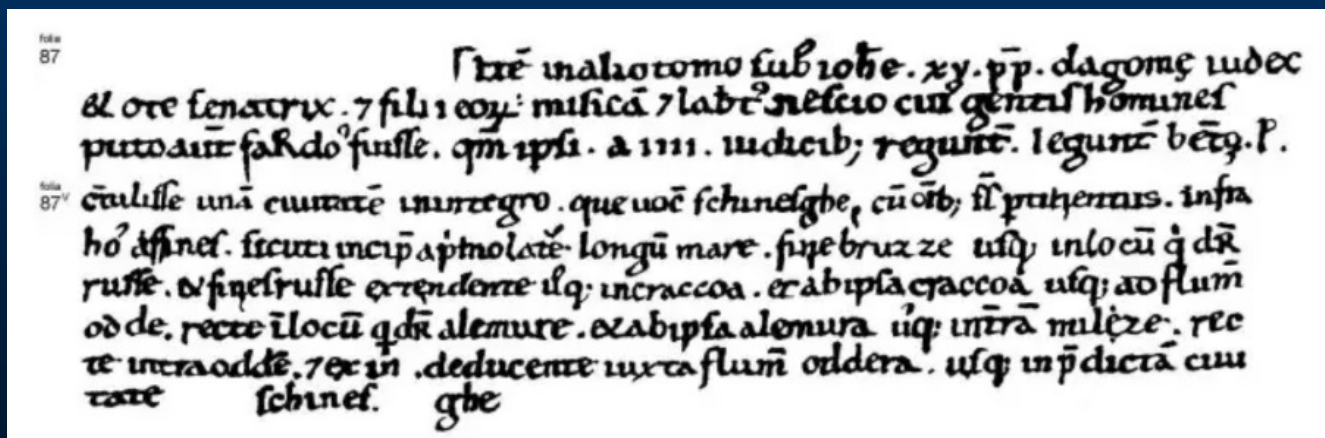 folia
87
Itē in alio tomo sub ioħe . xv . pp̄ . dagomę iudex
& ote senatrix . ⁊ filii eoꝝ : misicā ⁊ lab̄t᾽ nescio cui᾽ gentis homines
puto aut̄ sardo᾽ fuisse . qm̄ ipsi . a iiii . iudicib; regunt̄ . legunt̄
folia
87v
unā ciuitatē in integro . que uoc̄ schinesghe , cū oīb; suis infra
affines . sicuti incip̄ longū mare . fine bruzze usq; in locū q̇ dr̄
russe . & fines russe extendente usq; in craccoa . et ab ipsa craccoa usq; ad flum̄
odde . recte ī locū q̇ dr̄ alemure . & ab ipsa alemura usq; in t̄rā milęze . rec
te intra oddē . ⁊ ex in̄ . deducente iuxta flum̄ oddera . usq; in p̄dictā ciui
tate schines. ghe